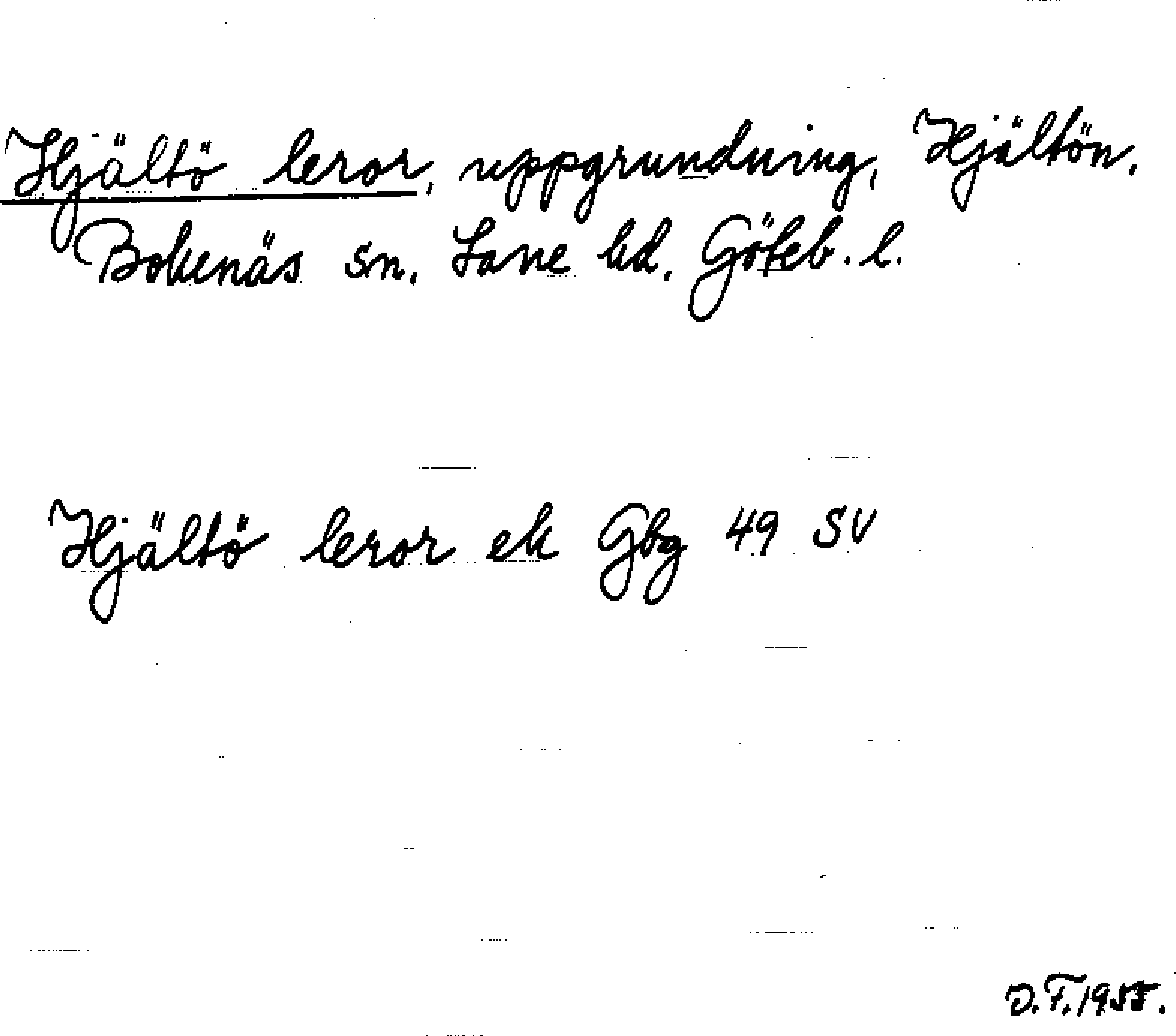 Hjältö leror, uppgrundning, Hjältön,
Bokenäs sn. Lane hd, Göteb. l.
Hjältö leror ek Gbg 49 SV
D.F. 1955.